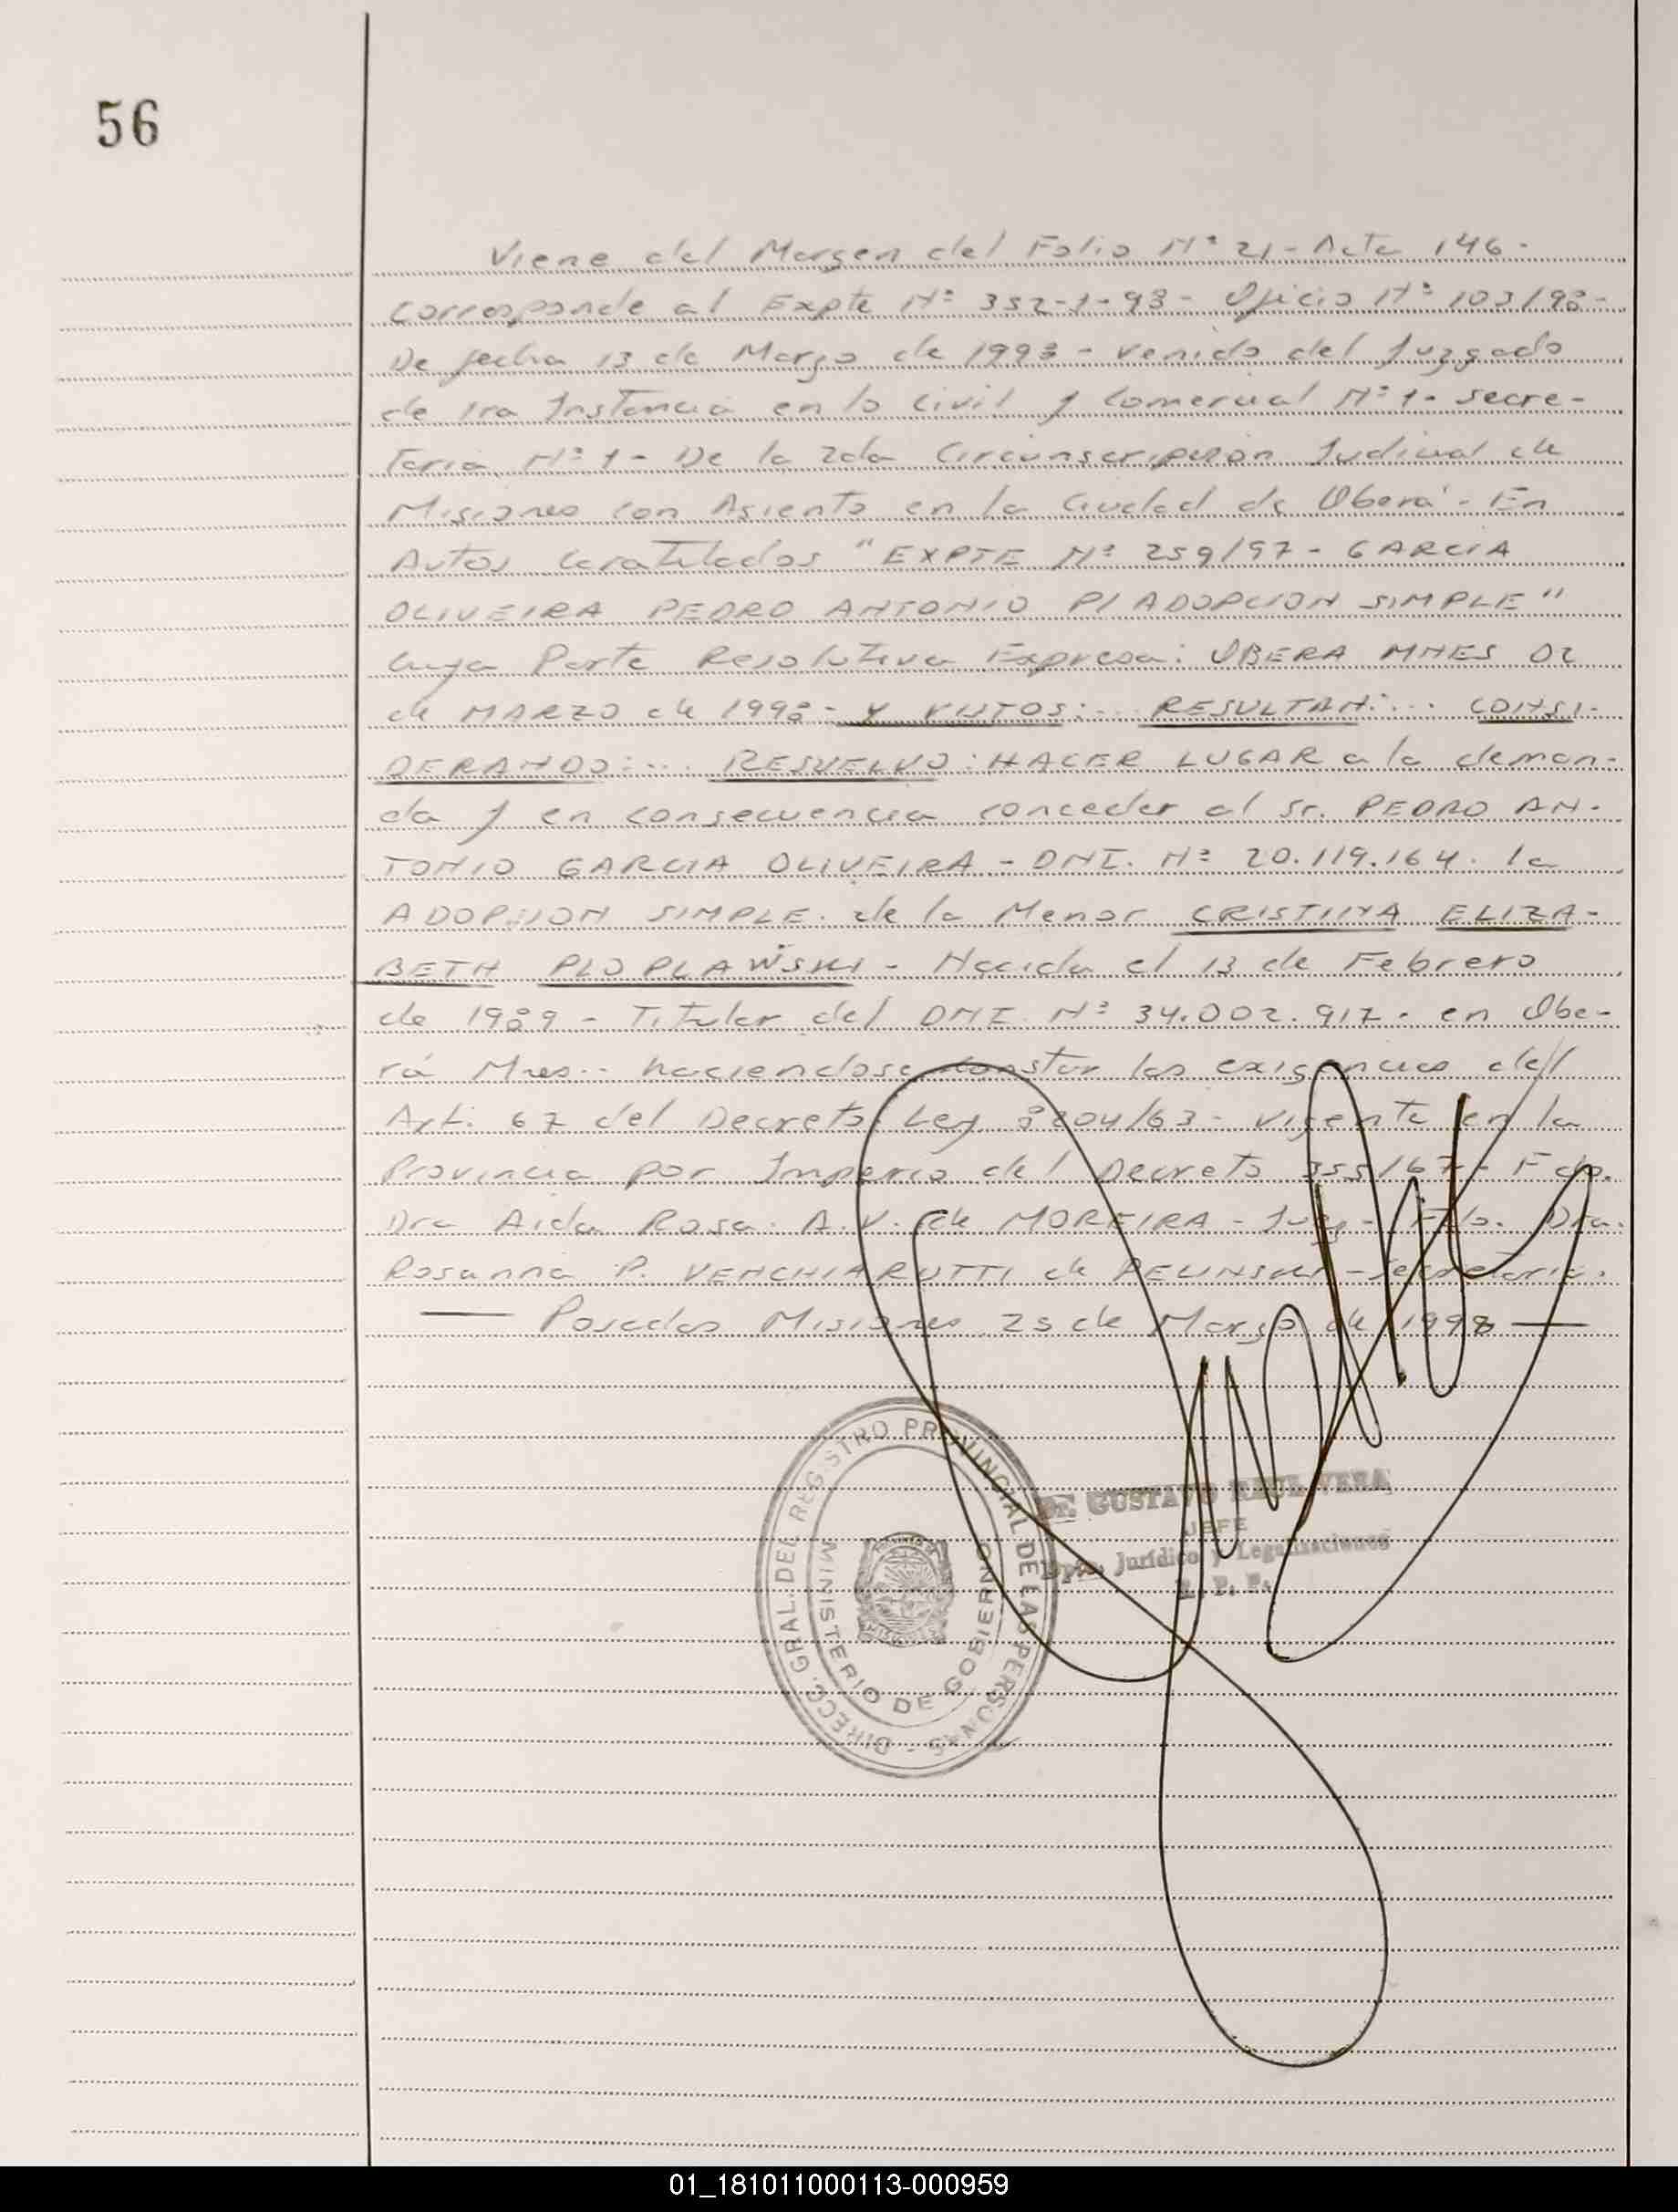 56
Viene del Margen del Folio Nº 21 - Acta 146 -
corresponde al Expte Nº 352-J-98 - Oficio Nº 103/98 -
De fecha 13 de Marzo de 1998 - Venido del Juzgado
de 1ra Instancia en lo Civil y Comercial Nº 1 - Secre-
taria Nº 1 - De la 2da Circunscripcion Judicial de
Misiones con Asiento en la Ciudad de Oberá - En
Autos caratulados "EXPTE Nº 259/97 - GARCIA
OLIVEIRA PEDRO ANTONIO P/ ADOPCION SIMPLE"
Cuya Parte Resolutiva Expresa: OBERA MNES 02
de MARZO de 1998 - Y VISTOS: ... RESULTAN: ... CONSI-
DERANDO: ... RESUELVO: HACER LUGAR a la deman-
da y en consecuencia conceder al Sr. PEDRO AN-
TONIO GARCIA OLIVEIRA - DNI. Nº 20.119.164. la
ADOPCION SIMPLE. de la Menor CRISTINA ELIZA-
BETH PLOPLAWSKI - Nacida el 13 de Febrero
de 1989 - Titular del DNI Nº 34.002.917 - en Obe-
rá Mnes.. haciendose constar las exigencias del
Art. 67 del Decreto Ley 8204/63 - vigente en la
Provincia por Imperio del Decreto 355/67 - Fdo.
Dra Aida Rosa. A.V. de MOREIRA - Juez - Fdo. Dra.
Rosanna P. VENCHIARUTTI de - Secretaria.
— Posadas Misiones 25 de Marzo de 1998 —
DIRECC. GRAL. DEL REGISTRO PROVINCIAL DE LAS PERSONAS -
MINISTERIO DE GOBIERNO
MISIONES
Dr. GUSTAVO RAUL VERA
JEFE
Dpto. Jurídico y Legalizaciones
R. P. P.
01_181011000113-000959